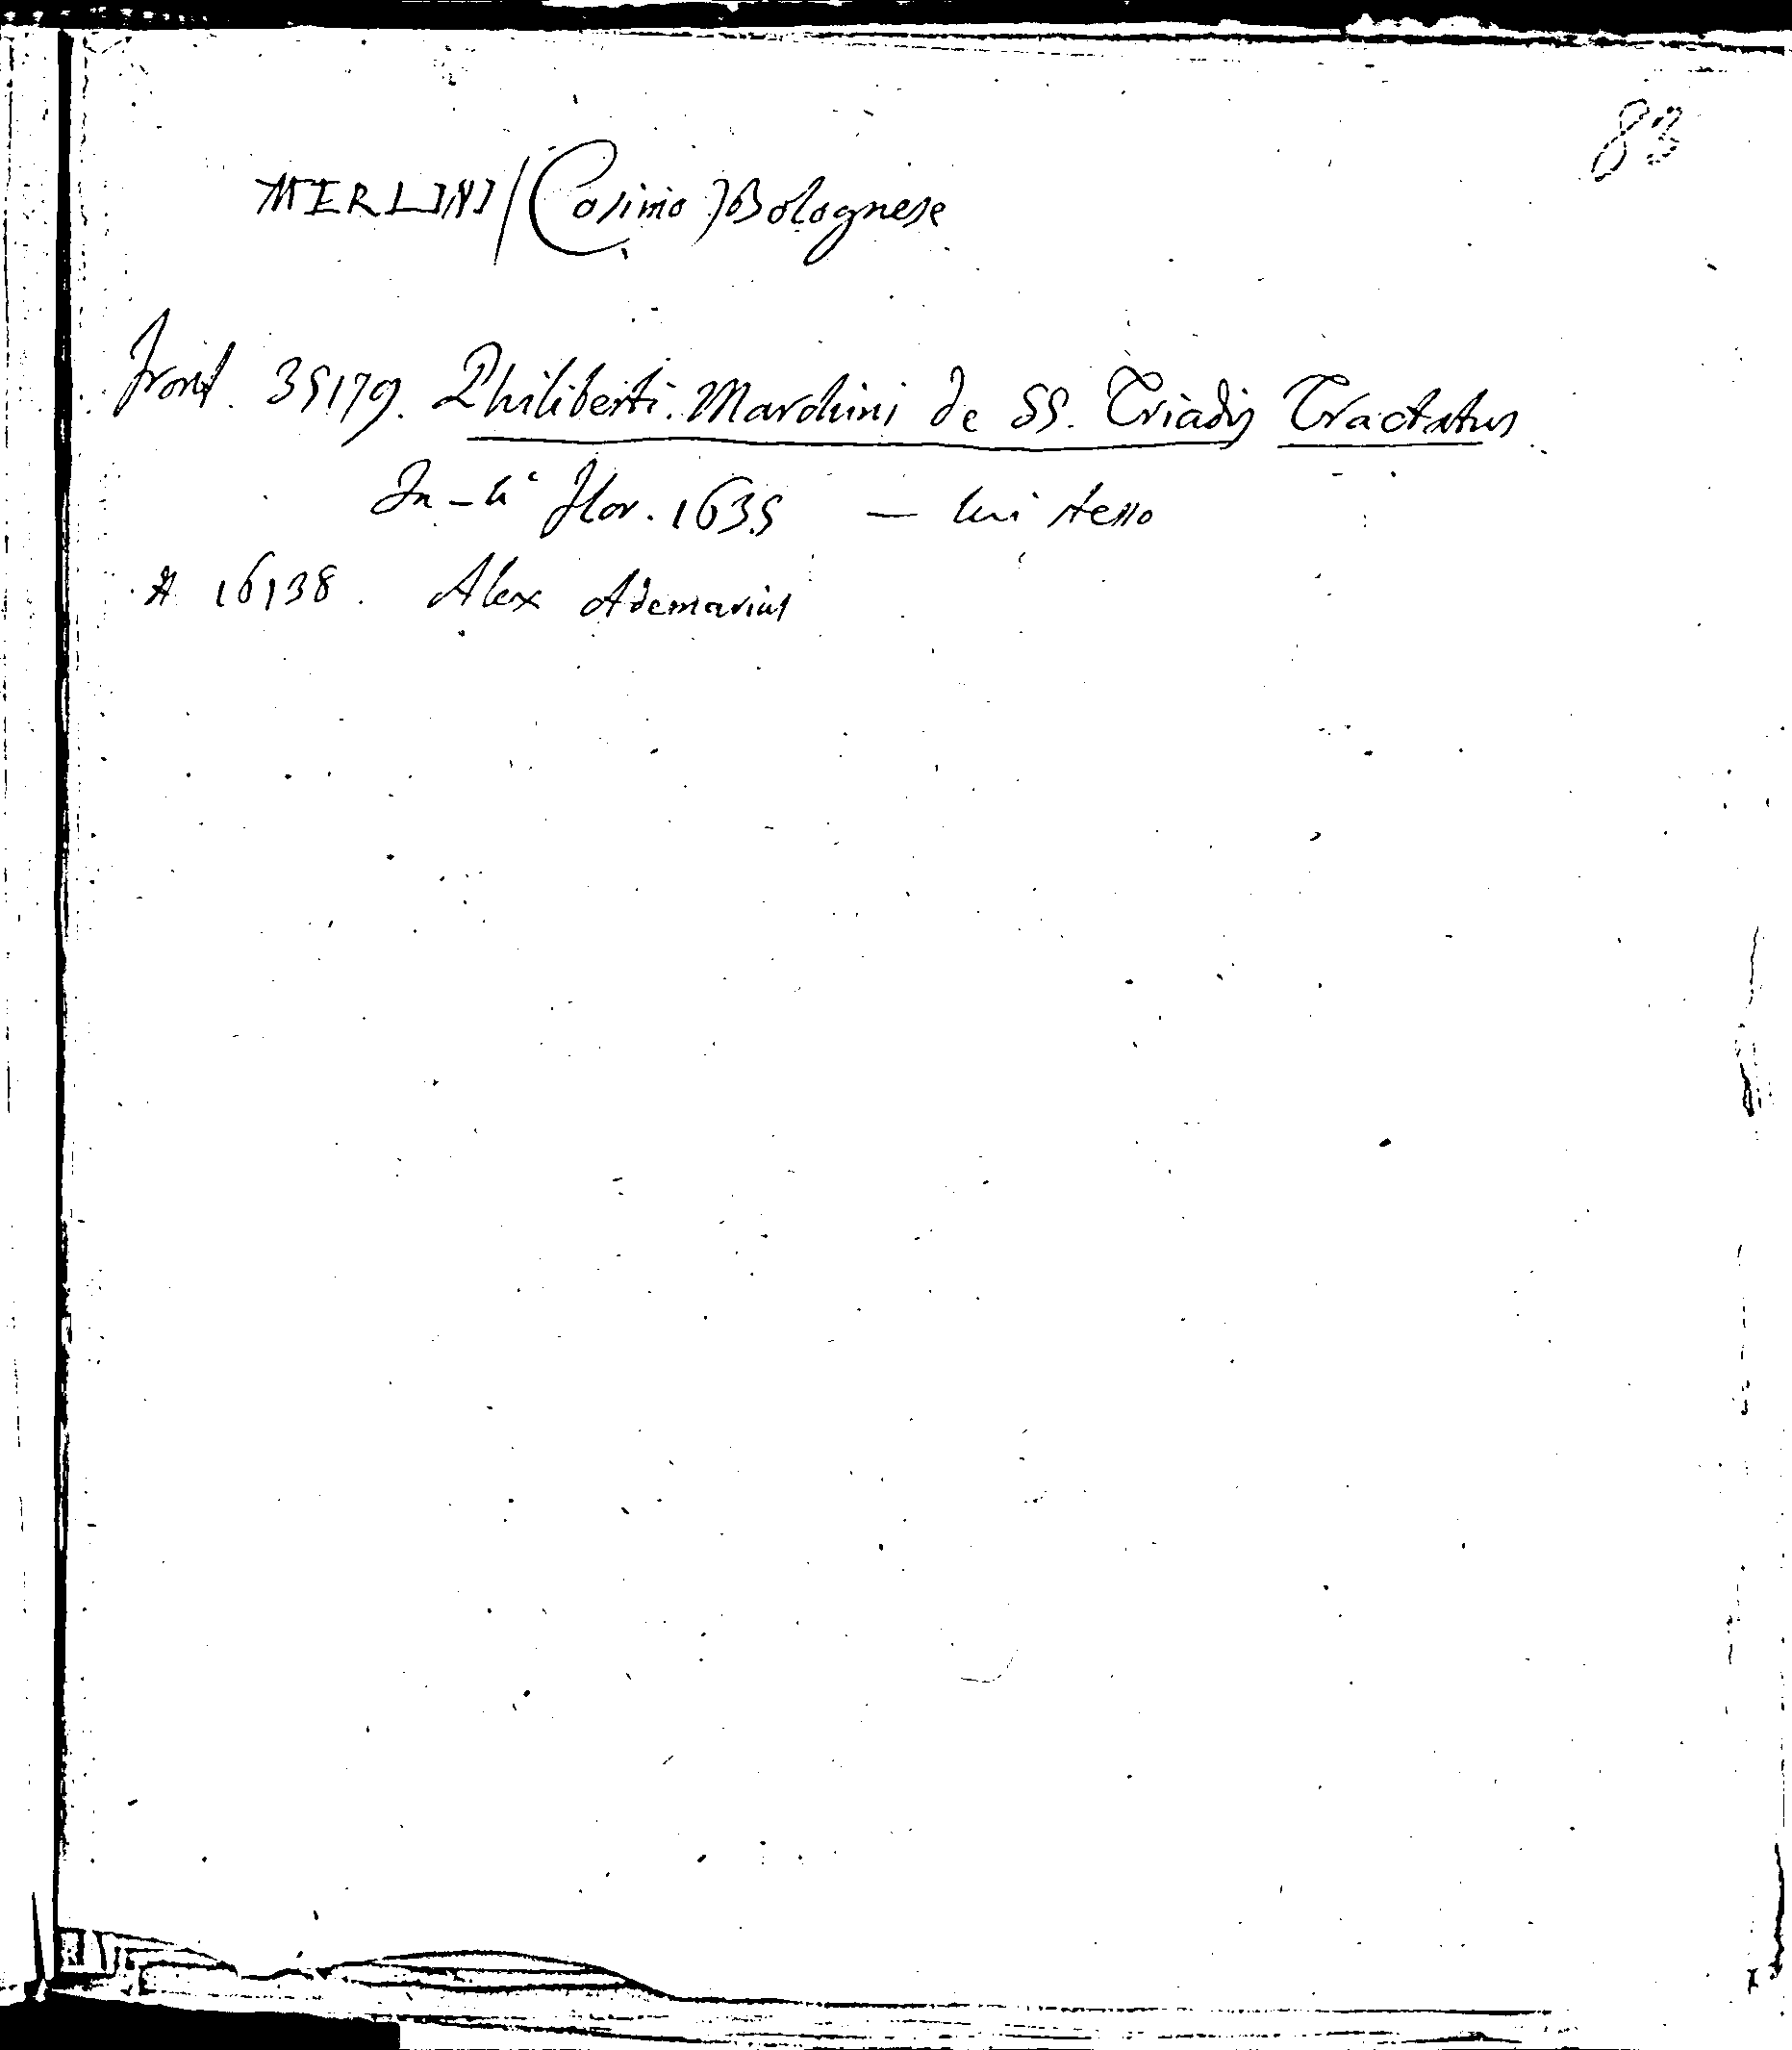 83
MERLINI (Cosimo) Bolognese
Front. 35179. Philiberti Marchini de SS. Triadis Tractatus.
In-4° Flor. 1635 — lui stesso
A 16138. Alex Ademarius